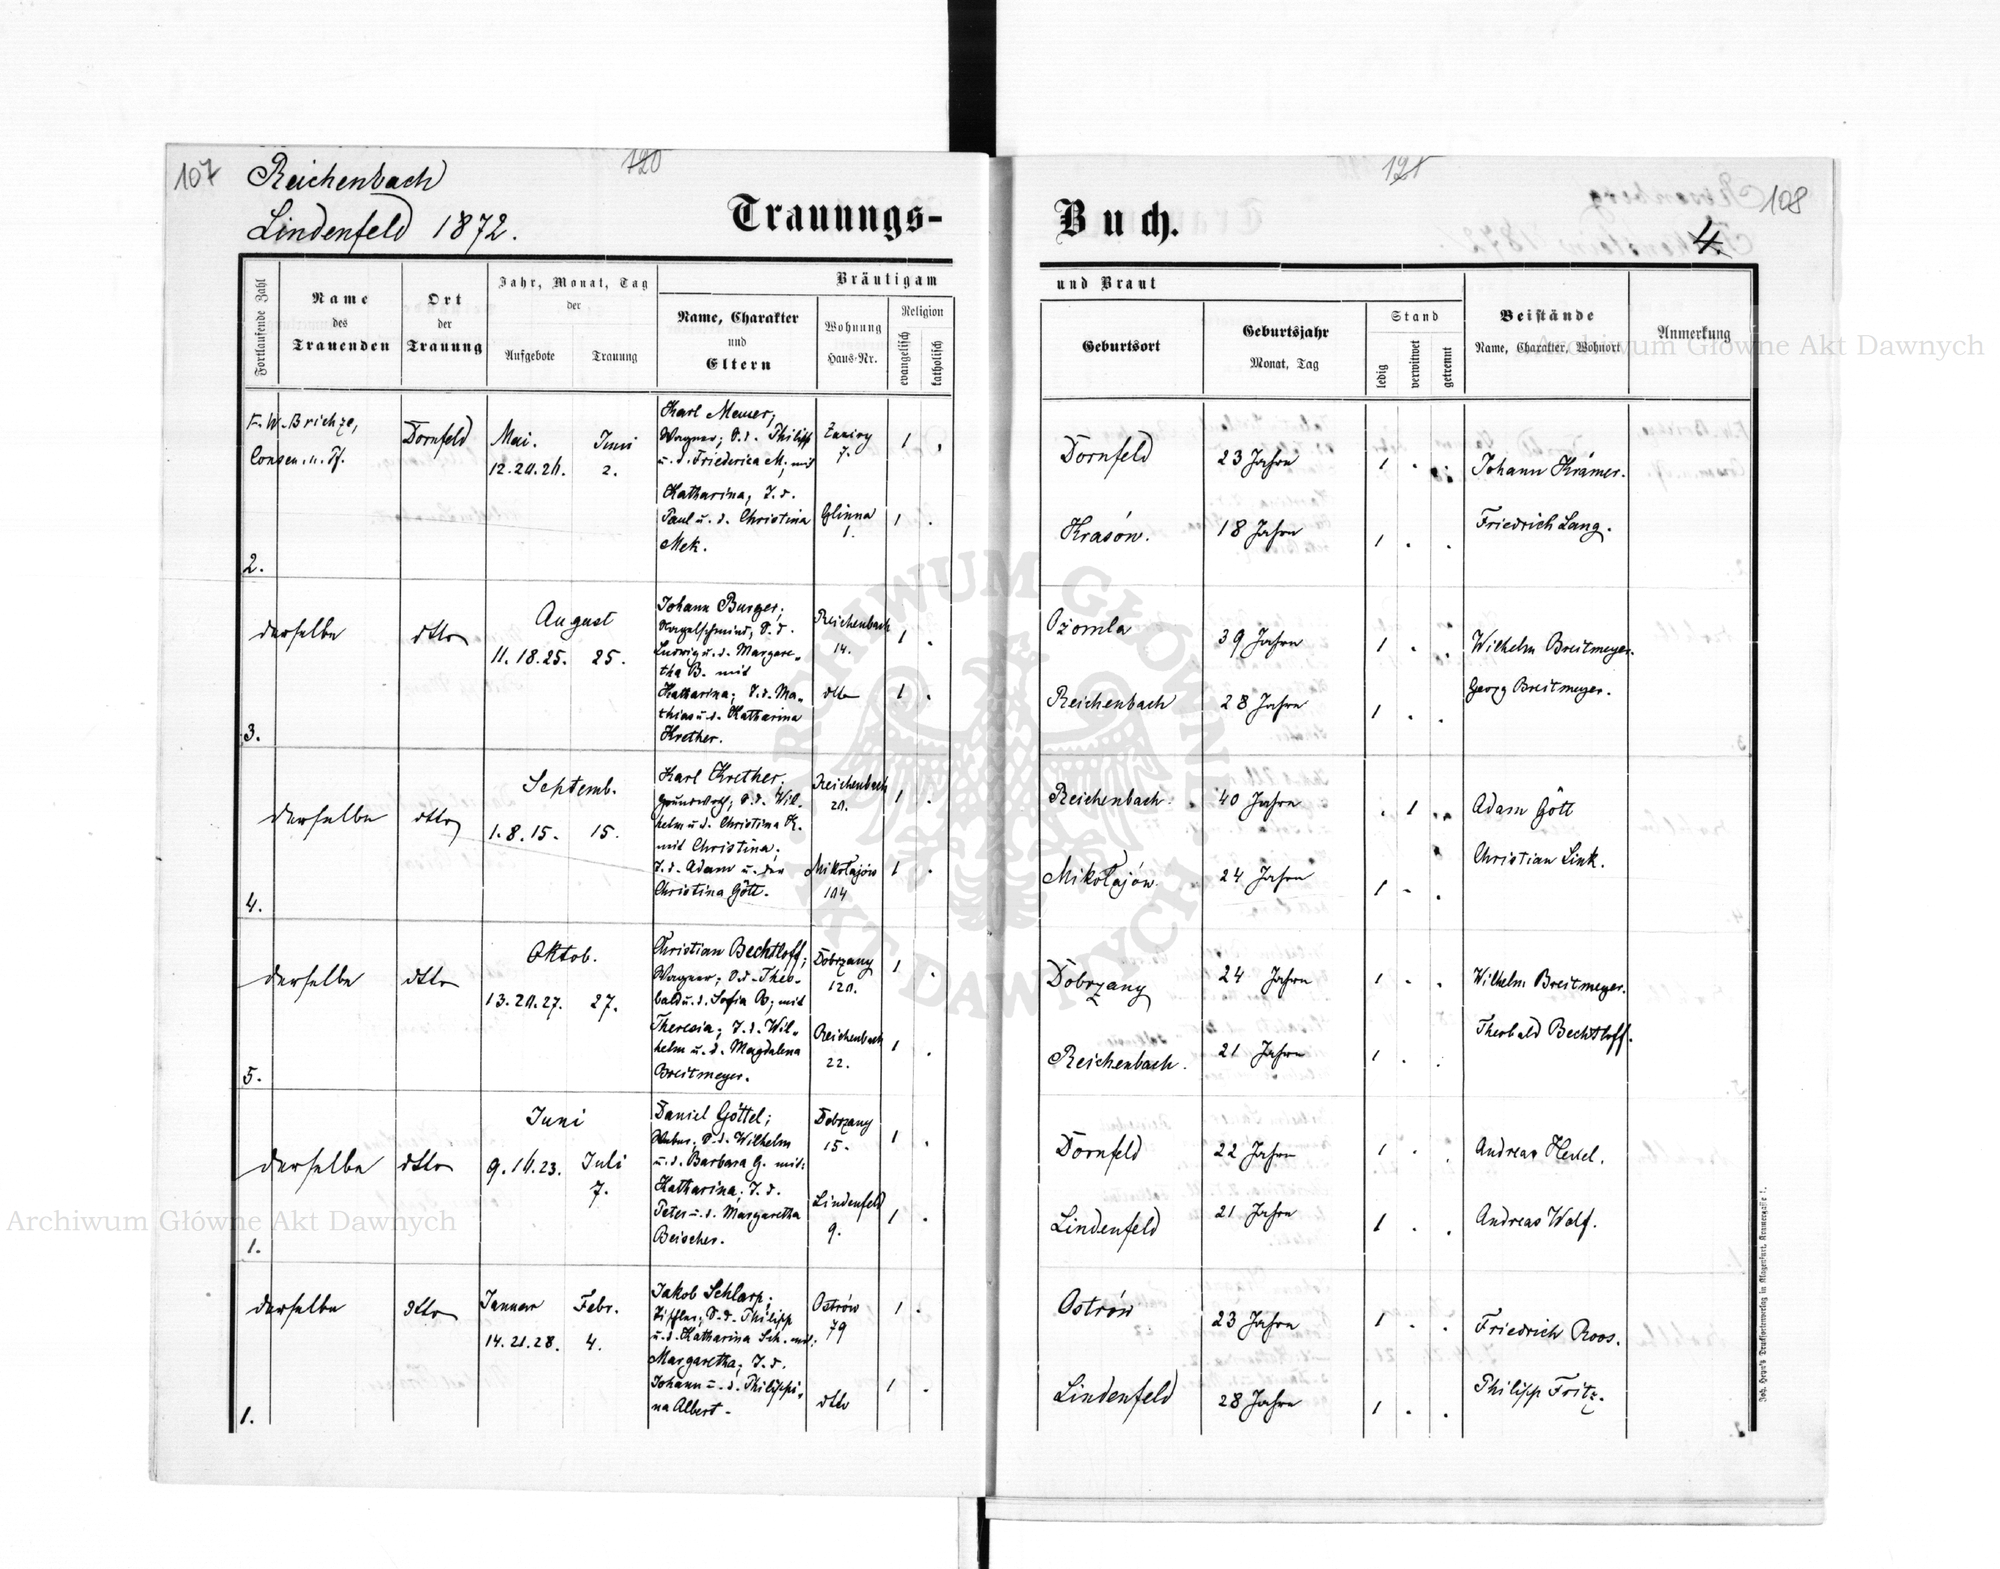 107
Reichenbach
Lindenfeld 1872.
120
Trauungs-
Buch.
121
108
4.
Fortlaufende Zahl
Name
des
Trauenden
Ort
der
Trauung
Jahr, Monat, Tag
der
Aufgebote
Trauung
Bräutigam
Name, Charakter
und
Eltern
Wohnung
Haus-Nr.
Religion
evangelisch
katholisch
und Braut
Geburtsort
Geburtsjahr
Monat, Tag
Stand
ledig
verwitwet
getrennt
Beistände
Name, Charakter, Wohnort
Anmerkung
2.
Dornfeld
Mai.
Juni
2.
Karl Memer,
Wagner; S.d. Philipp
u. d. Friederica M; mit
Katharina, T. d.
Paul u. d. Christina
Mek.
7.
1
Glinna
1.
1
Dornfeld
23 Jahre
1
Johann Krämer.
Krasów.
18 Jahre
1
Friedrich Lang.
3.
derselbe
dtto
August
11. 18. 25.
25.
Johann Burger;
Nagelschmied, S. d.
Ludwig u. d. Margare-
tha B. mit
Katharina; T. d. Ma-
thias u. d. Katharina
Krether.
Reichenbach
14.
1
dtto
1
Ożomla
39 Jahre
1
Wilhelm Breitmeyer.
Reichenbach
28 Jahre
1
Georg Breitmeyer.
4.
derselbe
dtto
Septemb.
1. 8. 15.
15.
Karl Krether;
Grundwirth; S. d. Wil-
helm u d. Christina K.
mit Christina;
T. d. Adam u. der
Christina Gött.
Reichenbach
20.
1
Mikołajów
104
1
Reichenbach.
40 Jahre
1
Adam Gött
Mikołajów.
24 Jahre
1
Christian Link.
5.
derselbe
dtto
Oktob.
13. 20. 27.
27.
Christian Bechtloff;
Wagner; S. d. Theo-
bald u. d. Sofia B; mit
Theresia; T. d. Wil-
helm u. d. Magdalena
Breitmeyer.
Dobrzany
120.
1
Reichenbach
22.
1
Dobrzany
24 Jahre
1
Wilhelm Breitmeyer.
Reichenbach.
21 Jahre
1
Theobald Bechtloff.
1.
derselbe
dtto
Juni
9. 16. 23.
Juli
7.
Daniel Göttel;
Weber. S. d. Wilhelm
u. d. Barbara G. mit:
Katharina; T. d.
Peter u. d. Margaretha
Beischer.
Dobrzany
15.
1
Lindenfeld
9.
1
Dornfeld
22 Jahre
1
Lindenfeld
21 Jahre
1
Andreas Wolf.
1.
derselbe
dtto
Januar
14. 21. 28.
Febr.
4.
Jakob Schlarp;
S. d. Philipp
u. d. Katharina Sch. mit:
Margaretha; T. d.
Johann u. d. Philippi-
na Albert.
Ostrów
79
1
dtto
1
Ostrów
23 Jahre
1
Friedrich Roos.
Lindenfeld
28 Jahre
1
Philipp Fritz.
Archiwum Główne Akt Dawnych
Archiwum Główne Akt Dawnych
ARCHIWUM GŁÓWNE AKT DAWNYCH